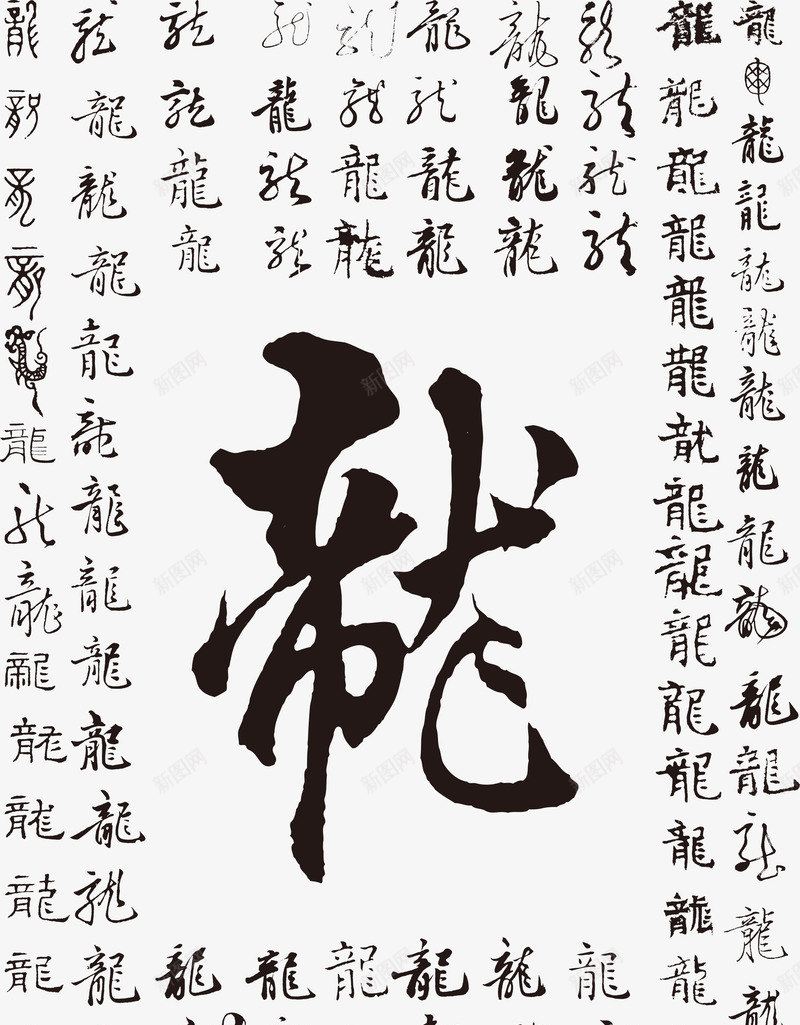 龍龍龍龍龍龍龍龍龍龍
龍龍龍龍龍龍龍龍龍龍
龍龍龍龍龍龍龍龍龍龍
龍龍龍龍龍龍龍龍龍龍
龍龍龍龍
龍龍龍龍
龍龍龍龍
龍龍龍龍
龍龍龍龍龍
龍龍龍龍
龍龍龍龍
龍龍龍龍
龍龍
龍龍龍龍龍龍龍龍龍龍
龍
新图网